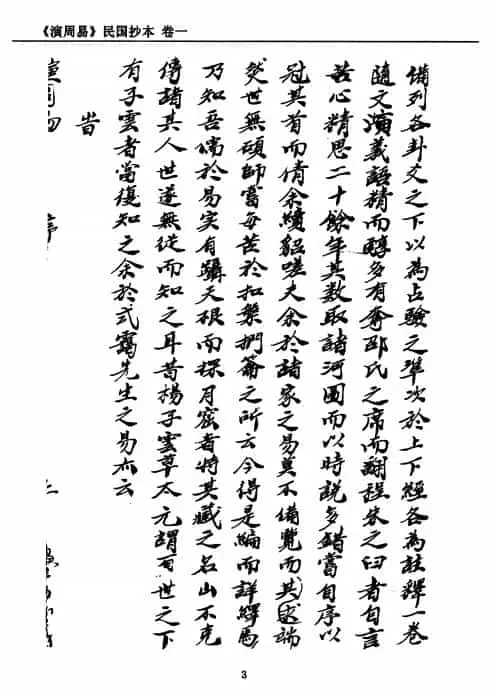 《演周易》民国抄本 卷一
備列各卦爻之下以為占驗之準次於上下經各為註釋一卷
隨文演義語精而醇多有奪邵氏之席而翻程朱之臼者自言
苦心精思二十餘年其數取諸河圖而以時說多錯嘗自序以
冠其首而倩余續貂嗟夫余於諸家之易莫不備覽而其說
然世無碩師嘗每苦於扣槃捫籥之所云今得是編而詳繹焉
乃知吾儒於易実有躡天根而探月窟者将其藏之名山不克
傳諸其人世遂無從而知之耳昔楊子雲草太元謂百世之下
有子雲者當復知之余於式靄先生之易亦云
旹
演周易
序
3